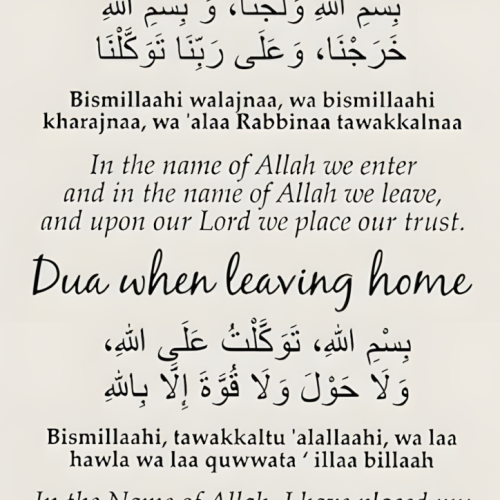 بِسْمِ اللهِ وَلَجْنَا، وَ بِسْمِ اللهِ
خَرَجْنَا، وَعَلَى رَبِّنَا تَوَكَّلْنَا
Bismillaahi walajnaa, wa bismillaahi
kharajnaa, wa 'alaa Rabbinaa tawakkalnaa
In the name of Allah we enter
and in the name of Allah we leave,
and upon our Lord we place our trust.
Dua when leaving home
بِسْمِ اللهِ، تَوَكَّلْتُ عَلَى اللهِ،
وَلَا حَوْلَ وَلَا قُوَّةَ إِلَّا بِاللهِ
Bismillaahi, tawakkaltu 'alallaahi, wa laa
hawla wa laa quwwata ‘ illaa billaah
In the Name of Allah, I have placed my